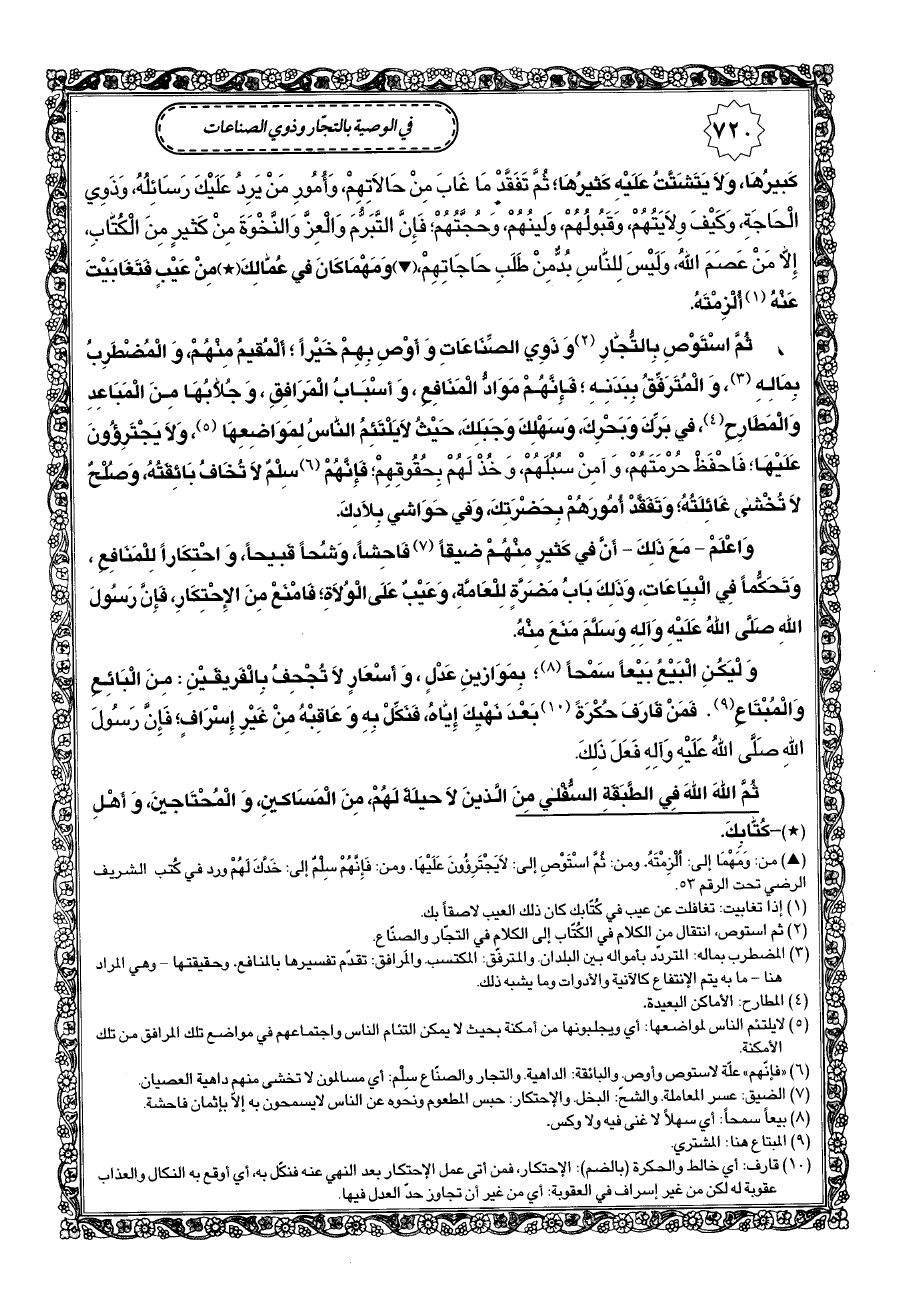 ٧٢٠
في الوصية بالتجّار وذوي الصناعات
كَبِيرُهَا، وَلاَ يَتَشَتَّتُ عَلَيْهِ كَثِيرُهَا؛ ثُمَّ تَفَقَّدْ مَا غَابَ مِنْ حَالاَتِهِمْ، وَأُمُورِ مَنْ يَرِدُ عَلَيْكَ رَسَائِلُهُ، وَذَوِي
الْحَاجَةِ، وَكَيْفَ وِلاَيَتُهُمْ، وَقَبُولُهُمْ، وَلِينُهُمْ، وَحُجَّتُهُمْ؛ فَإِنَّ التَّبَرُّمَ وَالْعِزَّ وَالنَّخْوَةَ مِنْ كَثِيرٍ مِنَ الْكُتَّابِ،
إِلاَّ مَنْ عَصَمَ اللهُ، وَلَيْسَ لِلنَّاسِ بُدٌّ مِنْ طَلَبِ حَاجَاتِهِمْ،(▼)وَمَهْمَا كَانَ في عُمَّالِكَ(★)مِنْ عَيْبٍ فَتَغَابَيْتَ
عَنْهُ (١) أُلْزِمْتَهُ.
ثُمَّ اسْتَوْصِ بِالتُّجَّارِ (٢)وَ ذَوِي الصِّنَاعَاتِ وَ أَوْصِ بِهِمْ خَيْراً ؛ اَلْمُقيمُ مِنْهُمْ، وَ الْمُضْطَرِبُ
بِمَالِهِ (٣)، وَ الْمُتَرَفِّقُ بِبَدَنِهِ ؛ فَإِنَّهُمْ مَوَادُّ الْمَنَافِعِ ، وَ أَسْبَابُ الْمَرَافِقِ ، وَ جُلاَّبُهَا مِنَ الْمَبَاعِدِ
وَالْمَطَارِحِ(٤)، في بَرِّكَ وَبَحْرِكَ، وَسَهْلِكَ وَجَبَلِكَ، حَيْثُ لاَيَلْتَئِمُ النَّاسُ لِمَوَاضِعِهَا (٥)، وَلاَ يَجْتَرِؤُونَ
عَلَيْهَا؛ فَاحْفَظْ حُرْمَتَهُمْ، وَ آمِنْ سُبُلَهُمْ، وَ خُذْ لَهُمْ بِحُقُوقِهِمْ؛ فَإِنَّهُمْ (٦) سِلْمٌ لاَ تُخَافُ بَائِقَتُهُ، وَصُلْحٌ
لاَ تُخْشى غَائِلَتُهُ؛ وَتَفَقَّدْ أُمُورَهُمْ بِحَضْرَتِكَ، وَفي حَوَاشي بِلاَدِكَ.
وَاعْلَمْ - مَعَ ذَلِكَ - أَنَّ في كَثيرٍ مِنْهُمْ ضيقاً (٧) فَاحِشاً، وَشُحّاً قَبيحاً، وَ احْتِكَاراً لِلْمَنَافِعِ ،
وَتَحَكُّماً فِي الْبِيَاعَاتِ، وَذَلِكَ بَابُ مَضَرَّةٍ لِلْعَامَّةِ، وَعَيْبٌ عَلَى الْوُلاَةِ؛ فَامْنَعْ مِنَ الإِحْتِكَارِ، فَإِنَّ رَسُولَ
اللهِ صَلَّى اللهُ عَلَيْهِ وَآلِهِ وَسَلَّمَ مَنَعَ مِنْهُ.
وَ لْيَكُنِ الْبَيْعُ بَيْعاً سَمْحاً (٨)؛ بِمَوَازينِ عَدْلٍ ، وَ أَسْعَارٍ لاَ تُجْحِفُ بِالْفَريقَيْنِ : مِنَ الْبَائِعِ
وَالْمُبْتَاعِ(٩). فَمَنْ قَارَفَ حُكْرَةً (١٠)بَعْدَ نَهْيِكَ إِيَّاهُ، فَنَكِّلْ بِهِ وَ عَاقِبْهُ مِنْ غَيْرِ إِسْرَافٍ؛ فَإِنَّ رَسُولَ
اللهِ صَلَّى اللهُ عَلَيْهِ وَآلِهِ فَعَلَ ذَلِكَ.
ثُمَّ اللهَ اللهَ فِي الطَّبَقَةِ السُّفْلى مِنَ الَّذينَ لاَ حيلَةَ لَهُمْ، مِنَ الْمَسَاكينِ، وَ الْمُحْتَاجينَ، وَ أَهْلِ
(★)-كُتَّابِكَ.
(▲) من: وَمَهْمَا إلى: أُلْزِمْتَهُ. ومن: ثُمَّ اسْتَوْصِ إلى: لاَيَجْتَرِؤُونَ عَلَيْهَا. ومن: فَإِنَّهُمْ سِلْمٌ إلى: خَدَّكَ لَهُمْ ورد في كتب الشريف
الرضي تحت الرقم ٥٣.
(١) إذا تغابيت: تغافلت عن عيب في كُتّابك كان ذلك العيب لاصقاً بك.
(٢) ثم استوص، انتقال من الكلام في الكُتّاب إلى الكلام في التجّار والصنّاع.
(٣) المضطرب بماله: المتردّد بأمواله بين البلدان. والمترفّق: المكتسب. والمرافق: تقدّم تفسيرها بالمنافع. وحقيقتها - وهي المراد
هنا - ما به يتم الإنتفاع كالآنية والأدوات وما يشبه ذلك.
(٤) المطارح: الأماكن البعيدة.
(٥) لايلتئم الناس لمواضعها: أي ويجلبونها من أمكنة بحيث لا يمكن التئام الناس واجتماعهم في مواضع تلك المرافق من تلك
الأمكنة.
(٦) «فإنّهم» علّة لاستوص وأوص. والبائقة: الداهية. والتجار والصنّاع سِلْم: أي مسالمون لا تخشى منهم داهية العصيان.
(٧) الضيق: عسر المعاملة. والشحّ: البخل. والإحتكار: حبس المطعوم ونحوه عن الناس لايسمحون به إلاّ بإثمان فاحشة.
(٨) بيعاً سمحاً: أي سهلاً لا غنى فيه ولا وكس.
(٩) المبتاع هنا: المشتري.
(١٠) قارف: أي خالط والحكرة (بالضم): الإحتكار، فمن أتى عمل الإحتكار بعد النهي عنه فنكّل به، أي أوقع به النكال والعذاب
عقوبة له لكن من غير إسراف في العقوبة: أي من غير أن تجاوز حدّ العدل فيها.